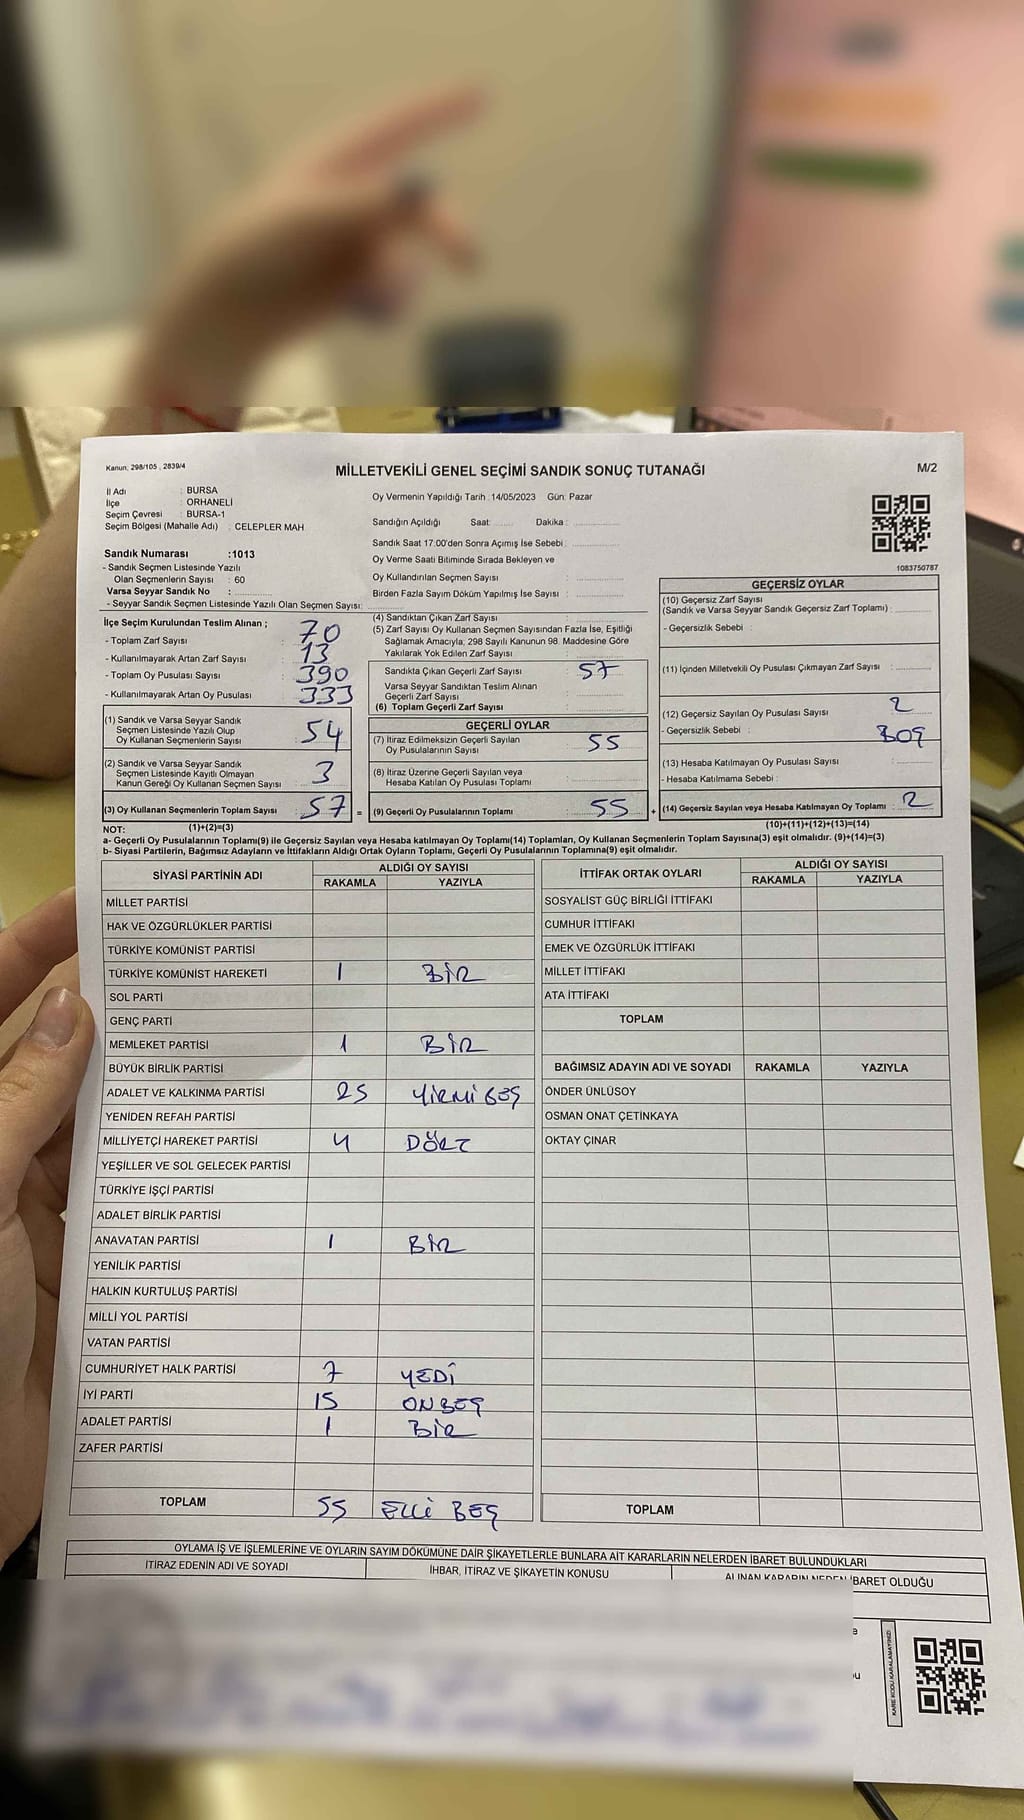 Kanun; 298/105 , 2839/4
MİLLETVEKİLİ GENEL SEÇİMİ SANDIK SONUÇ TUTANAĞI
M/2
İl Adı : BURSA
İlçe : ORHANELİ
Seçim Çevresi : BURSA-1
Seçim Bölgesi (Mahalle Adı) : CELEPLER MAH
Sandık Numarası :1013
- Sandık Seçmen Listesinde Yazılı
Olan Seçmenlerin Sayısı : 60
Varsa Seyyar Sandık No :
- Seyyar Sandık Seçmen Listesinde Yazılı Olan Seçmen Sayısı:
Oy Vermenin Yapıldığı Tarih :14/05/2023 Gün: Pazar
Sandığın Açıldığı Saat: Dakika :
Sandık Saat 17:00'den Sonra Açımış İse Sebebi :
Oy Verme Saati Bitiminde Sırada Bekleyen ve
Oy Kullandırılan Seçmen Sayısı :
Birden Fazla Sayım Döküm Yapılmış İse Sayısı :
1083750787
İlçe Seçim Kurulundan Teslim Alınan ;
- Toplam Zarf Sayısı : 70
- Kullanılmayarak Artan Zarf Sayısı : 13
- Toplam Oy Pusulası Sayısı : 390
- Kullanılmayarak Artan Oy Pusulası : 333
(1) Sandık ve Varsa Seyyar Sandık
Seçmen Listesinde Yazılı Olup
Oy Kullanan Seçmenlerin Sayısı : 54
(2) Sandık ve Varsa Seyyar Sandık
Seçmen Listesinde Kayıtlı Olmayan
Kanun Gereği Oy Kullanan Seçmen Sayısı : 3
(3) Oy Kullanan Seçmenlerin Toplam Sayısı : 57 =
(4) Sandıktan Çıkan Zarf Sayısı :
(5) Zarf Sayısı Oy Kullanan Seçmen Sayısından Fazla İse, Eşitliği
Sağlanmak Amacıyla, 298 Sayılı Kanunun 98. Maddesine Göre
Yakılarak Yok Edilen Zarf Sayısı :
Sandıkta Çıkan Geçerli Zarf Sayısı : 57
Varsa Seyyar Sandıktan Teslim Alınan
Geçerli Zarf Sayısı :
(6) Toplam Geçerli Zarf Sayısı :
GEÇERLİ OYLAR
(7) İtiraz Edilmeksizin Geçerli Sayılan
Oy Pusulalarının Sayısı : 55
(8) İtiraz Üzerine Geçerli Sayılan veya
Hesaba Katılan Oy Pusulası Toplamı :
(9) Geçerli Oy Pusulalarının Toplamı : 55 +
GEÇERSİZ OYLAR
(10) Geçersiz Zarf Sayısı
(Sandık ve Varsa Seyyar Sandık Geçersiz Zarf Toplamı) :
- Geçersizlik Sebebi :
(11) İçinden Milletvekili Oy Pusulası Çıkmayan Zarf Sayısı :
(12) Geçersiz Sayılan Oy Pusulası Sayısı : 2
- Geçersizlik Sebebi : BOŞ
(13) Hesaba Katılmayan Oy Pusulası Sayısı :
- Hesaba Katılmama Sebebi :
(14) Geçersiz Sayılan veya Hesaba Katılmayan Oy Toplamı : 2
NOT: (1)+(2)=(3)
(10)+(11)+(12)+(13)=(14)
a- Geçerli Oy Pusulalarının Toplamı(9) ile Geçersiz Sayılan veya Hesaba katılmayan Oy Toplamı(14) Toplamları, Oy Kullanan Seçmenlerin Toplam Sayısına(3) eşit olmalıdır. (9)+(14)=(3)
b- Siyasi Partilerin, Bağımsız Adayların ve İttifakların Aldığı Ortak Oyların Toplamı, Geçerli Oy Pusulalarının Toplamına(9) eşit olmalıdır.
SİYASİ PARTİNİN ADI ALDIĞI OY SAYISI
RAKAMLA YAZIYLA
MİLLET PARTİSİ
HAK VE ÖZGÜRLÜKLER PARTİSİ
TÜRKİYE KOMÜNİST PARTİSİ
TÜRKİYE KOMÜNİST HAREKETİ 1 BİR
SOL PARTİ
GENÇ PARTİ
MEMLEKET PARTİSİ 1 BİR
BÜYÜK BİRLİK PARTİSİ
ADALET VE KALKINMA PARTİSİ 25 YİRMİ BEŞ
YENİDEN REFAH PARTİSİ
MİLLİYETÇİ HAREKET PARTİSİ 4 DÖRT
YEŞİLLER VE SOL GELECEK PARTİSİ
TÜRKİYE İŞÇİ PARTİSİ
ADALET BİRLİK PARTİSİ
ANAVATAN PARTİSİ 1 BİR
YENİLİK PARTİSİ
HALKIN KURTULUŞ PARTİSİ
MİLLİ YOL PARTİSİ
VATAN PARTİSİ
CUMHURİYET HALK PARTİSİ 7 YEDİ
İYİ PARTİ 15 ONBEŞ
ADALET PARTİSİ 1 BİR
ZAFER PARTİSİ
TOPLAM 55 ELLİ BEŞ
İTTİFAK ORTAK OYLARI ALDIĞI OY SAYISI
RAKAMLA YAZIYLA
SOSYALİST GÜÇ BİRLİĞİ İTTİFAKI
CUMHUR İTTİFAKI
EMEK VE ÖZGÜRLÜK İTTİFAKI
MİLLET İTTİFAKI
ATA İTTİFAKI
TOPLAM
BAĞIMSIZ ADAYIN ADI VE SOYADI RAKAMLA YAZIYLA
ÖNDER ÜNLÜSOY
OSMAN ONAT ÇETİNKAYA
OKTAY ÇINAR
TOPLAM
OYLAMA İŞ VE İŞLEMLERİNE VE OYLARIN SAYIM DÖKÜMÜNE DAİR ŞİKAYETLERLE BUNLARA AİT KARARLARIN NELERDEN İBARET BULUNDUKLARI
İTİRAZ EDENİN ADI VE SOYADI İHBAR, İTİRAZ VE ŞİKAYETİN KONUSU ALINAN KARARIN NEDEN İBARET OLDUĞU
KARE KODU KARALAMAYINIZ!